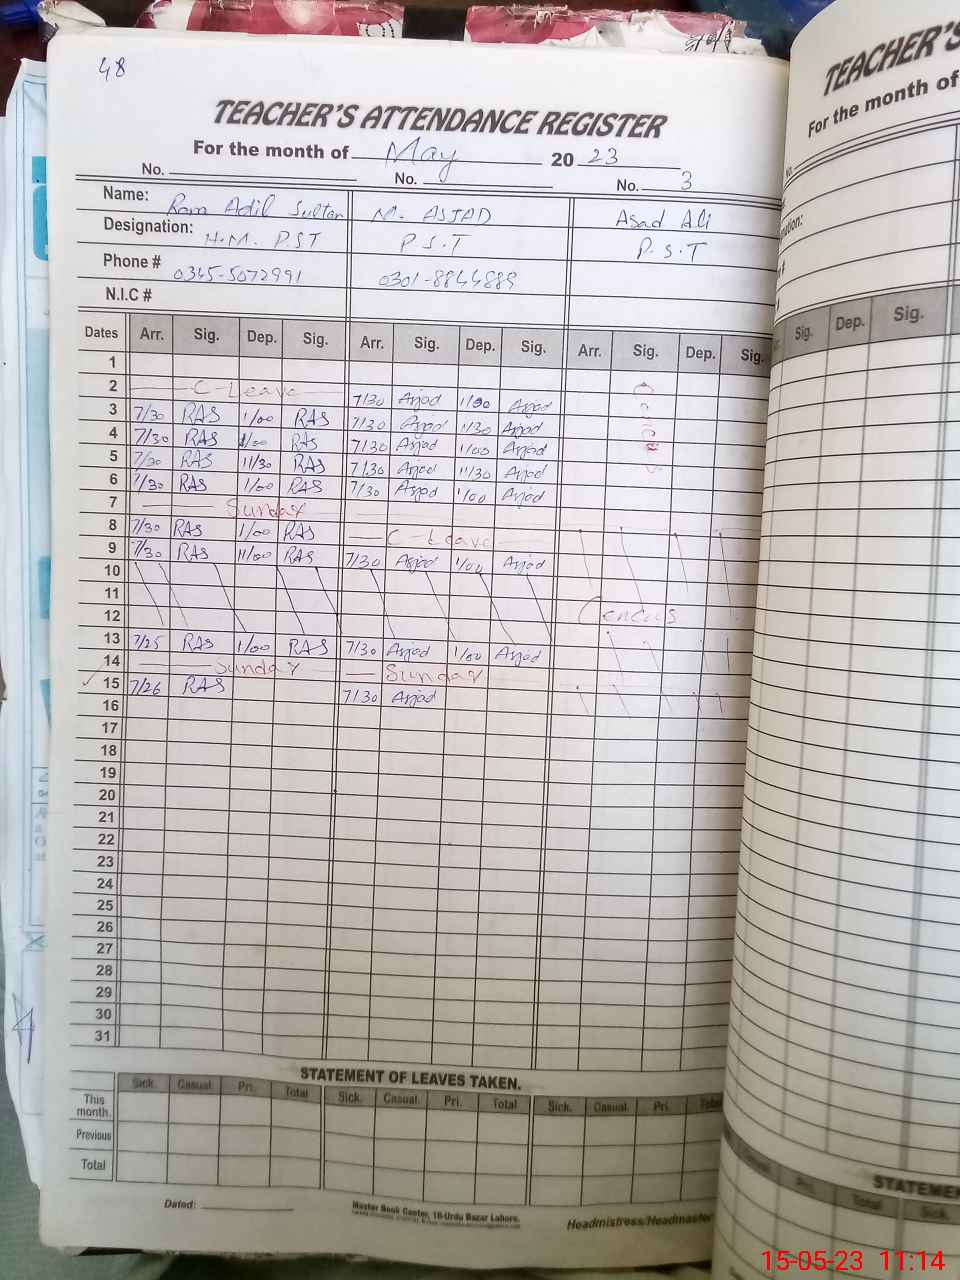 48
TEACHER'S ATTENDANCE REGISTER
For the month of May 2023
No. No. No. 3
Name: Adil Sultan M. ASJAD Asad Ali
Designation: H.M. P.S.T P.S.T P.S.T
Phone # 0345-5072991 0301-8844889
N.I.C #
Dates Arr. Sig. Dep. Sig. Arr. Sig. Dep. Sig. Arr. Sig. Dep. Sig.
1
2 C-Leave 7/30 Asjad 1/30 Asjad
3 7/30 RAS 1/00 RAS 7/30 Asjad 1/30 Asjad
4 7/30 RAS 1/00 RAS 7/30 Asjad 1/00 Asjad
5 7/30 RAS 11/30 RAS 7/30 Asjad 11/30 Asjad
6 7/30 RAS 1/00 RAS 7/30 Asjad 1/00 Asjad
7 Sunday
8 7/30 RAS 1/00 RAS C-Leave
9 7/30 RAS 11/00 RAS 7/30 Asjad 1/00 Asjad
10
11
12 Cencus
13 7/25 RAS 1/00 RAS 7/30 Asjad 1/00 Asjad
14 Sunday Sunday
15 7/26 RAS 7/30 Asjad
16
17
18
19
20
21
22
23
24
25
26
27
28
29
30
31
STATEMENT OF LEAVES TAKEN.
Sick. Casual. Pri. Total Sick. Casual. Pri. Total Sick. Casual. Pri. Total
This month.
Previous
Total
Dated:
Master Book Center, 18-Urdu Bazar Lahore.
Headmistress/Headmaster
TEACHER'S
For the month of
Sig. Dep. Sig.
Pri. Total Sick.
STATEMEN
15-05-23 11:14